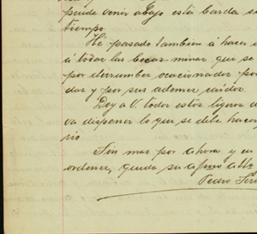 puede venir abajo esta barda
tiempo.
He pasado tambien á hacer
á todas las bocas minas que se
por derrumbes ocacionados por
das y por sus ademes caidos.
Doy a V. todos estos
va disponer lo que se debe hacer
rio
Sin mas por ahora y en
ordenes, queda su afmo atto
Pedro